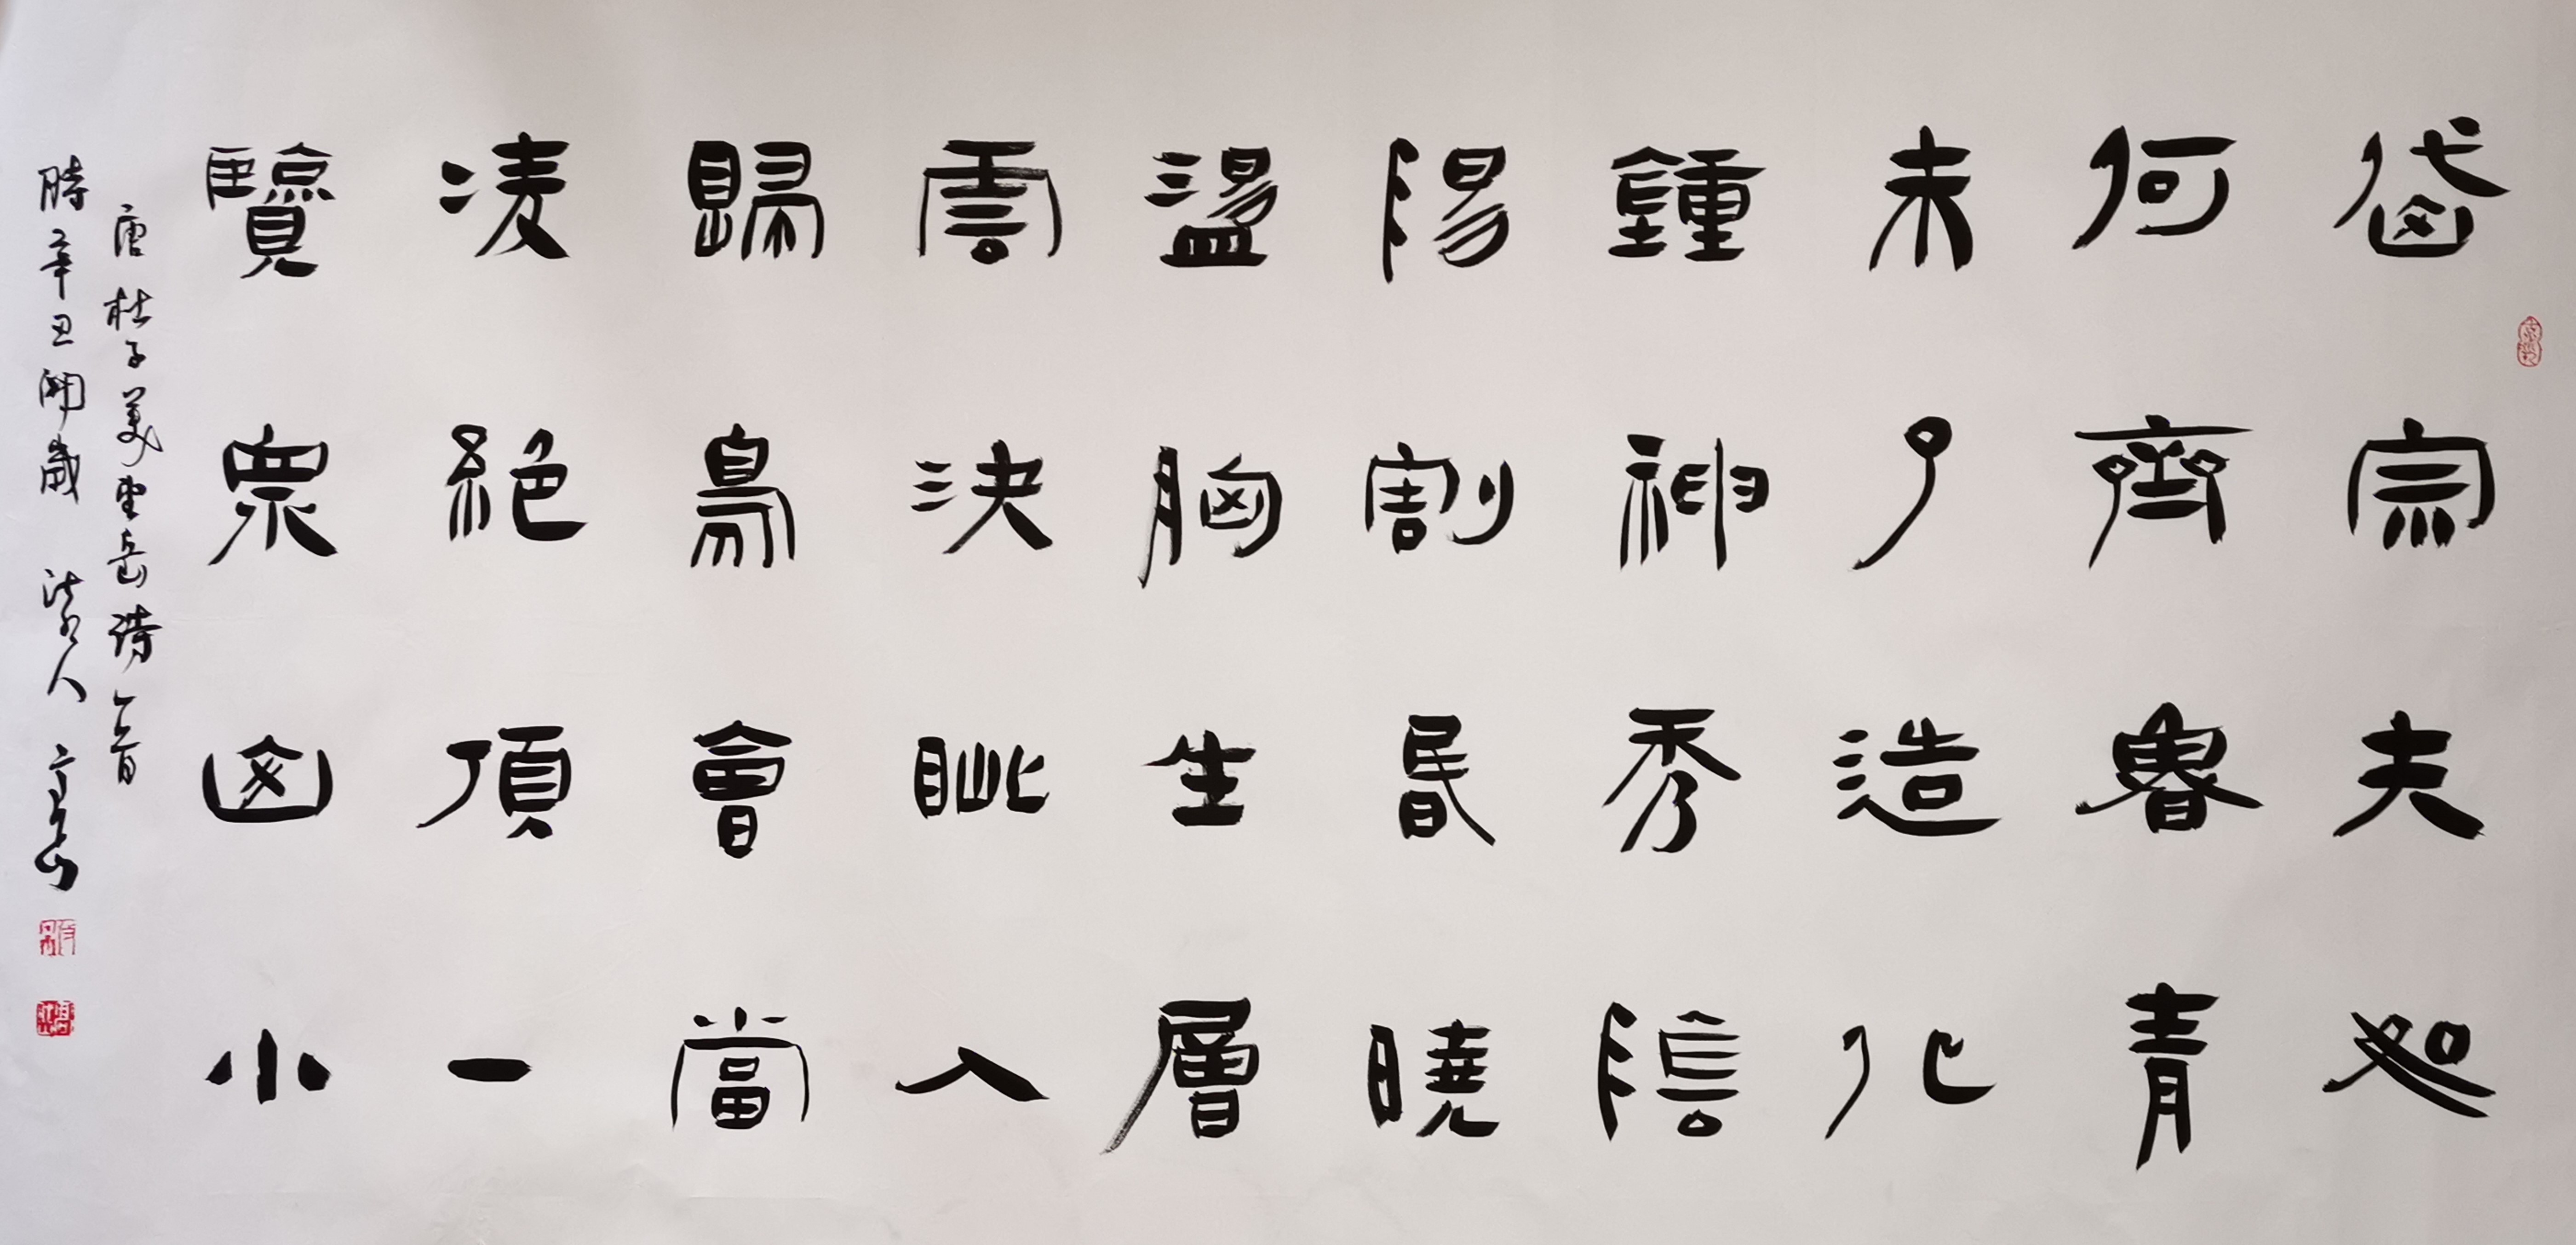 岱宗夫如
何齊魯青
未了造化
鍾神秀陰
陽割昏曉
盪胸生層
雲決眦入
歸鳥會當
凌絕頂一
覽眾山小
唐杜子美望岳詩一首
時辛丑開歲 人